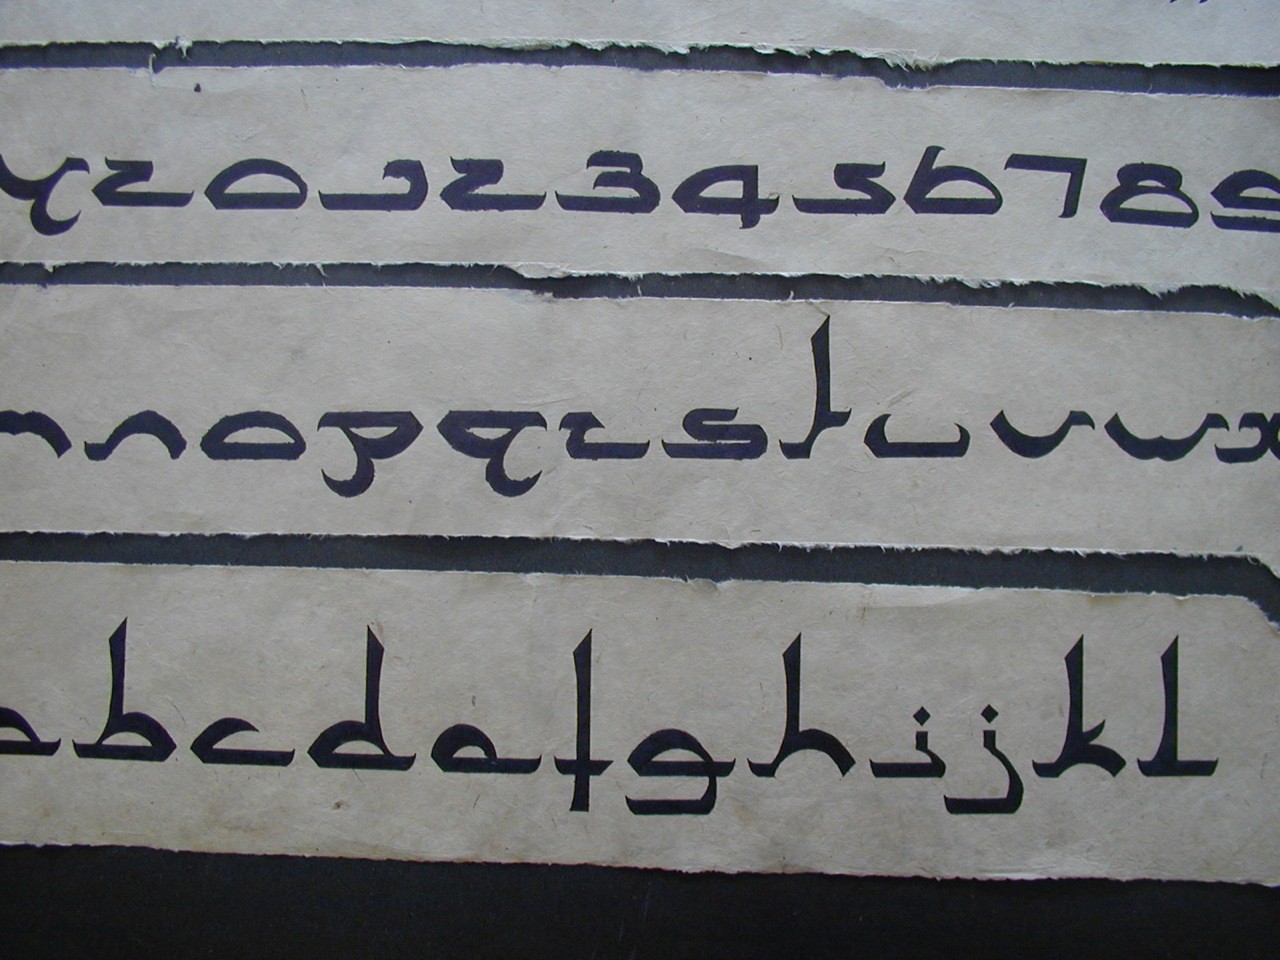 y z 0 1 2 3 4 5 6 7 8 9
m n o p q r s t u v w x
a b c d e f g h i j k l